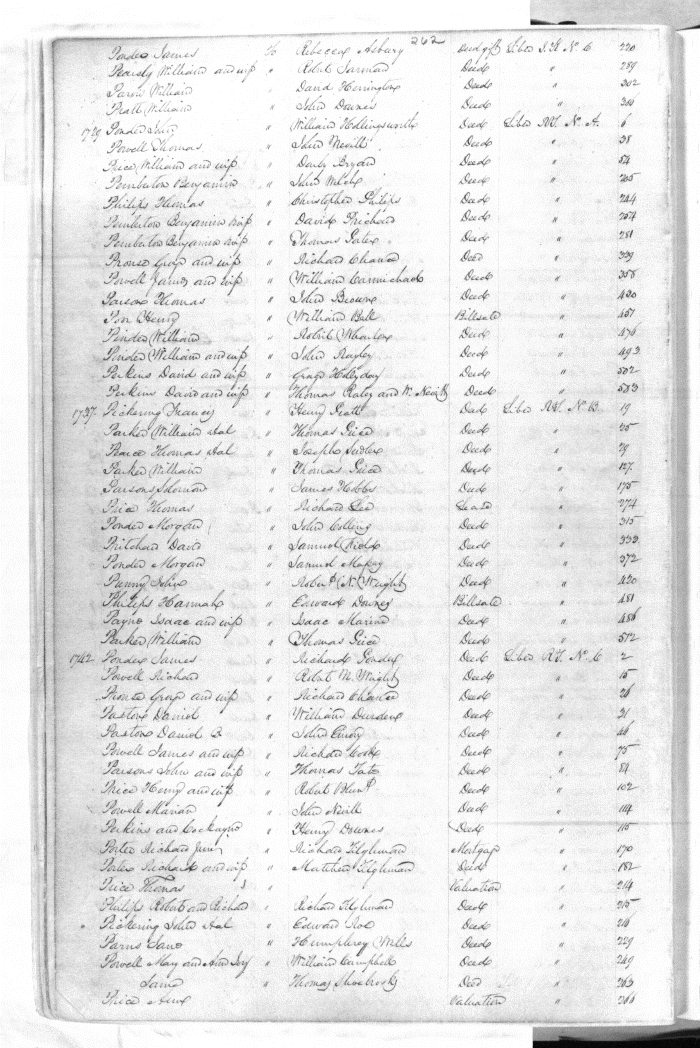 262
Ponder James to Rebecca Asbury Deed gift Liber I.K. No C 220
Pearsly William and wife " Robert Jarman Deed " 289
Parvis William " David Herrington Deed " 302
Pratt William " John Downes Deed " 310
1729 Ponder John " William Hollingsworth Deed Liber RT. No A. 6
Powell Thomas " John Nevill Deed " 38
Price William and wife " Danby Bryan Deed " 54
Pemberton Benjamin " John Welch Deed " 205
Philips Thomas " Christopher Philips Deed " 244
Pemberton Benjamin & wife " David Prichard Deed " 257
Pemberton Benjamin & wife " Thomas Yates Deed " 281
Prouse Geog and wife " Richard Chance Deed " 339
Powell James and wife " William Carmichael Deed " 358
Parson Thomas " John Brown Deed " 420
Poor Henry " William Bell Billsale " 457
Pinder William " Robert Wharton Deed " 476
Pinder William and wife " John Bayley Deed " 493
Perkins David and wife " George Hollyday Deed " 502
Perkins David and wife " Thomas Raley and W. Nevill Deed " 583
1737. Pickering Francis " Henry Deed Liber RT. No B 19
Parker William & al " Thomas Price Deed " 25
Pearce Thomas & al " Joseph Sudler Deed " 79
Parker William " Thomas Price Deed " 127
Parsons Solomon " James Hobbs Deed " 175
Price Thomas " Richard Lee Leased " 274
Ponder Morgan " John Colling Deed " 315
Pritchard David " Samuel Kidd Deed " 333
Ponder Morgan " Samuel Massy Deed " 372
Punny John " Robert N. Wright Deed " 420
Philips Hannah " Edward Downes Billsale " 481
Payne Isaac and wife " Isaac Marine Deed " 486
Parker William " Thomas Price Deed " 572
1742 Ponder James " Richard Ponder Deed Liber RT. No C 2
Powell Richard " Robert N. Wright Deed " 15
Prouse Geog and wife " Richard Chance Deed " 26
Paston Daniel " William Durden Deed " 31
Paston Daniel C " John Emory Deed " 46
Powell James and wife " Richard Cook Deed " 75
Parsons John and wife " Thomas Tate Deed " 81
Price Henry and wife " Robert Blunt Deed " 102
Powell Marian " John Nevill Deed " 114
Perkins and Cockayne " Henry Downes Deed " 115
Porter Richard Junr " Richard Tilghman Mortgage " 170
Porter Richard and wife " Matthew Tilghman Deed " 182
Price Thomas Valuation " 214
Philips Robert and Richard " Richard Tilghman Deed " 215
Pickering John & al " Edward Roe Deed " 216
Parns Jane " Humphrey Wells Deed " 229
Powell May and Ann " William Campbell Deed " 249
Same " Thomas Shoebrook Deed " 263
Price Ann Valuation " 266